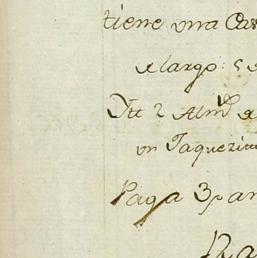 tiene vna Cas
de largo: 5 d
Itt 2 Almd. de
vn Taquezim
Paga 3 pan